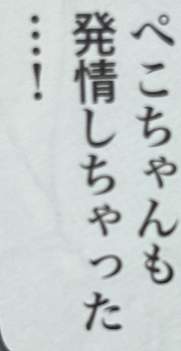 ぺこちゃんも
発情しちゃった
…!